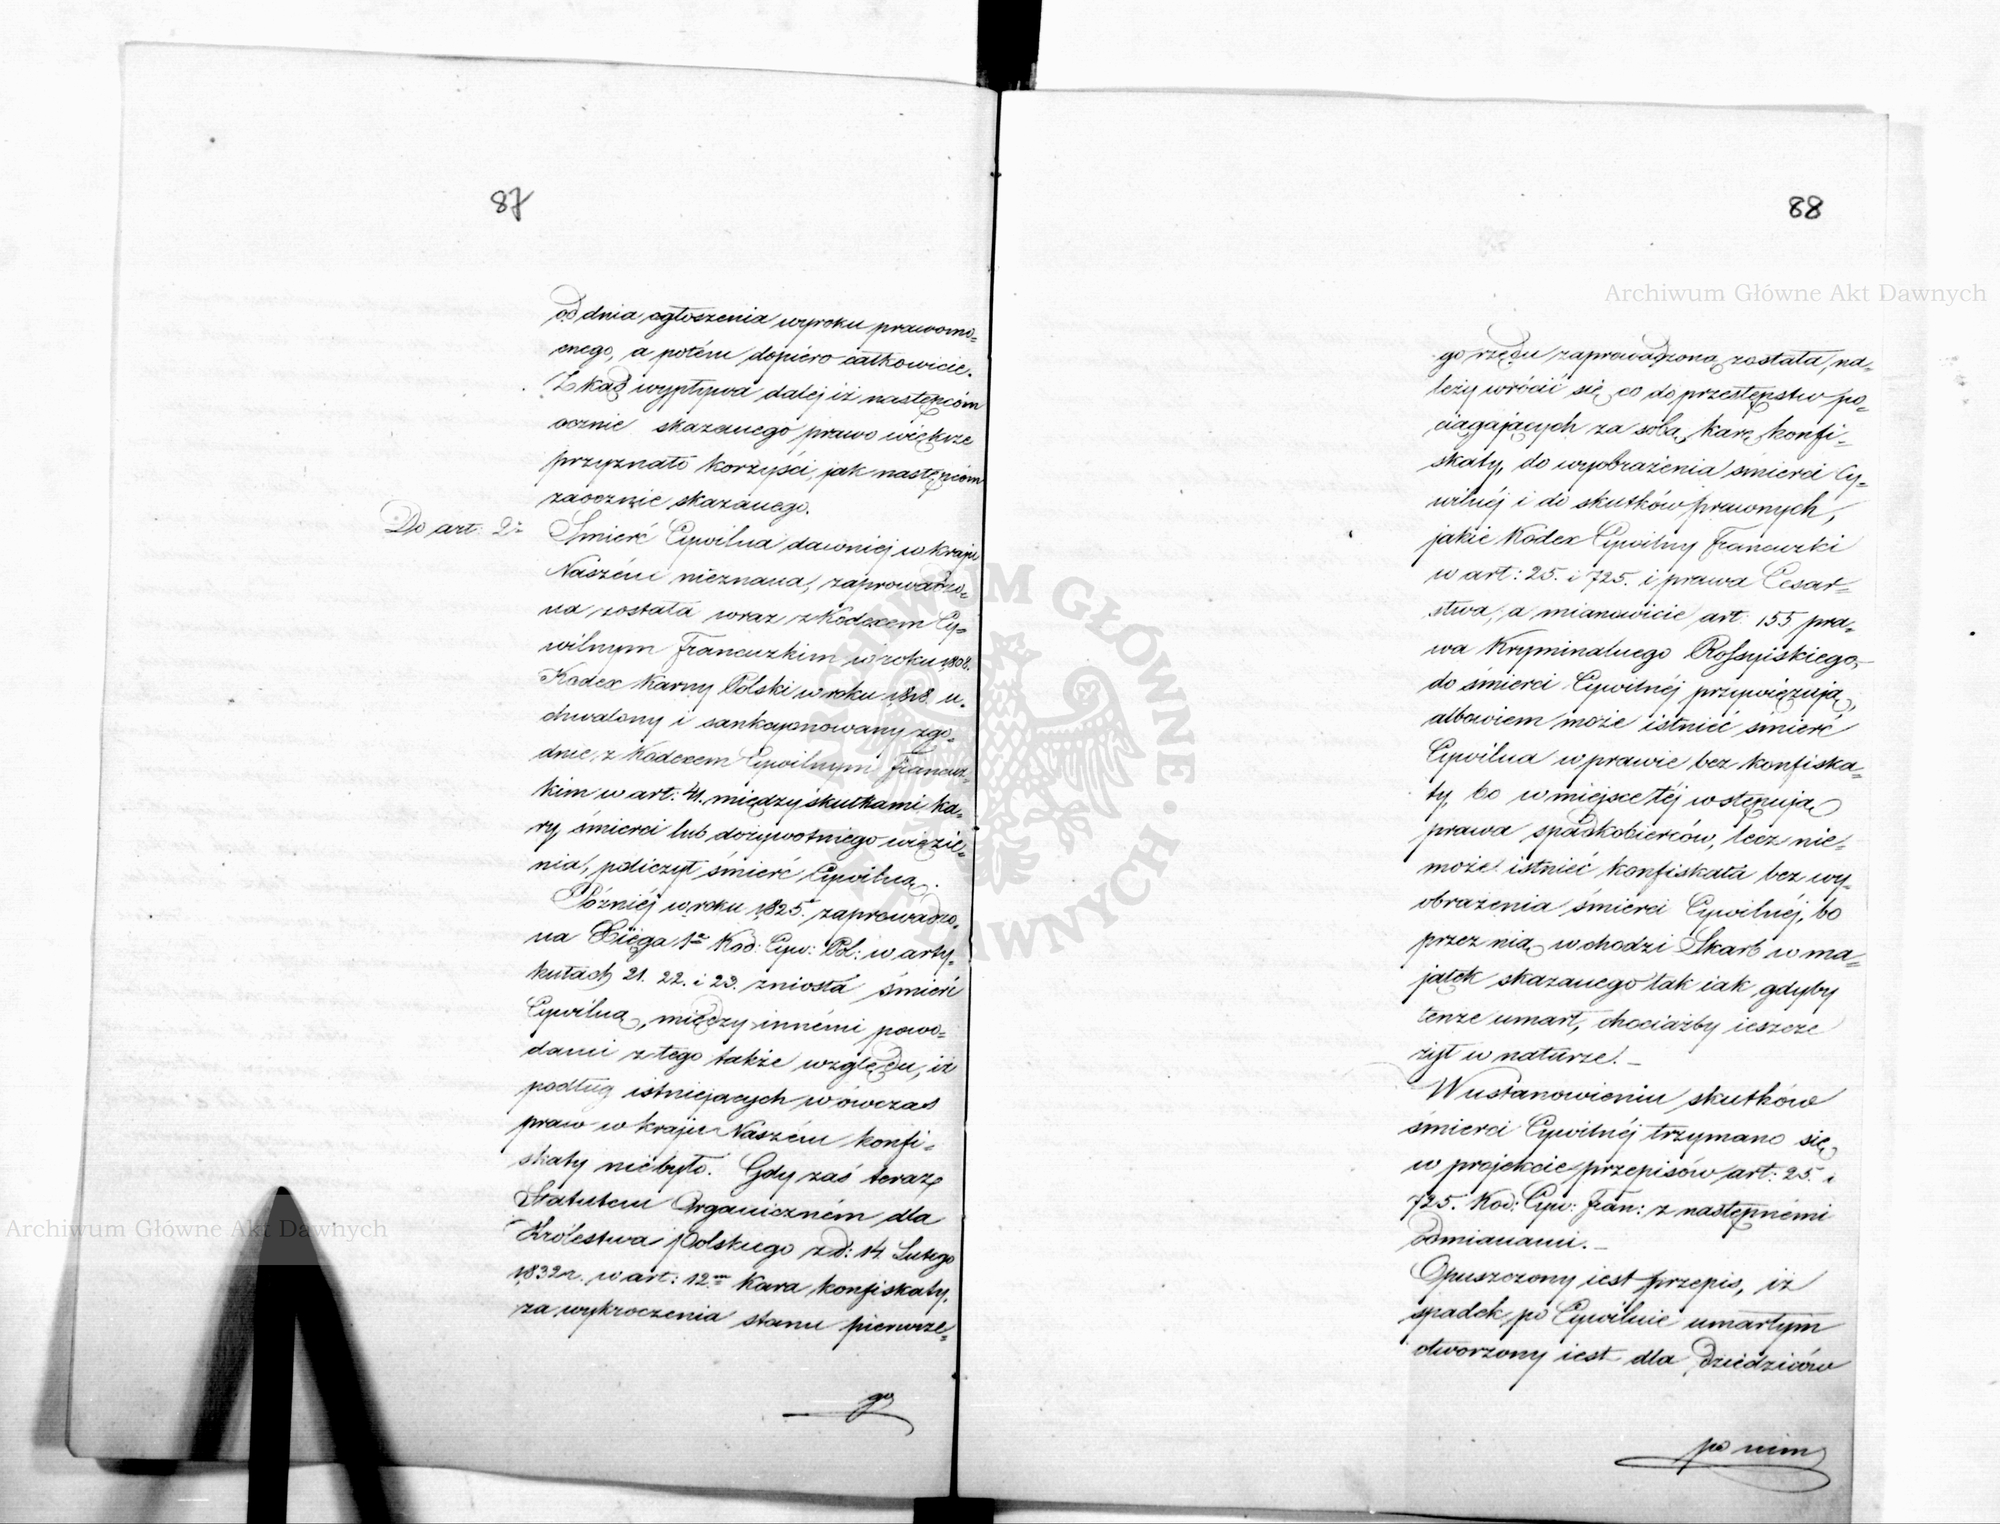 87
od dnia ogłoszenia wyroku prawomo-
cnego, a potém dopiéro całkowicie.
Z kąd wypływa daléj iż następcóm
ocznie skazanego prawo większe
przyznało korzyści, jak następcóm
zaocznie skazanego.
Do art: 2:
Smierć Cywilna dawniéj w kraju
Naszém nieznana, zaprowadzo-
na została wraz z Kodexem Cy-
wilnym Francuzkim w roku 1808.
Kodex Karny Polski w roku 1818. u-
chwalony i sankcyonowany zgo-
dnie, z Kodexem Cywilnym Francuz-
kim w art: 41. między skutkami ka-
ry śmierci lub dożywotniego więzie-
nia, policzył śmierć Cywilną.
Późniéj w roku 1825. zaprowadzo-
na Xięga 1a Kod: Cyw: Pol: w arty-
kułach 21. 22. i 23. zniosła śmierć
Cywilną, między innémi powo-
dami z tego także względu, iż
podług istniejących wówczas
praw w kraju Naszém konfi-
skaty niebyło. Gdy zaś teraz
Statutem Organiczném dla
Królestwa Polskiego z d: 14 Lutego
1832 r. w art: 12m Kara konfiskaty,
za wykroczenia stanu pierwsze-
go
88
go rzędu zaprowadzoną została, na-
leży wrócić się co do przestępstw po-
ciągających za sobą karę konfi-
skaty, do wyobrażenia śmierci Cy-
wilnéj i do skutków prawnych,
jakie Kodex Cywilny Francuzki
w art: 25. i 725. i prawa Cesar-
stwa, a mianowicie art 155 pra-
wa Kryminalnego Rossyiskiego,
do śmierci Cywilnéj przywięzują,
albowiem może istnieć śmierć
Cywilna w prawie bez konfiska-
ty, bo w miejsce téj wstępują
prawa spadkobierców, lecz nie-
może istnieć konfiskata bez wy-
obrażenia śmierci Cywilnéj, bo
przez nią wchodzi Skarb w ma-
jątek skazanego tak iak gdyby
tenże umarł, chociażby ieszcze
żył w naturze. _
W ustanowieniu skutków
śmierci Cywilnéj trzymano się
w projekcie przepisów art: 25. i
725. Kod: Cyw: Fran: z następnémi
odmianami. _
Opuszczony iest przepis, iż
spadek po Cywilnie umarłym
otworzony iest dla Dziedziców
po nim
Archiwum Główne Akt Dawnych
Archiwum Główne Akt Dawnych
ARCHIWUM GŁÓWNE AKT DAWNYCH